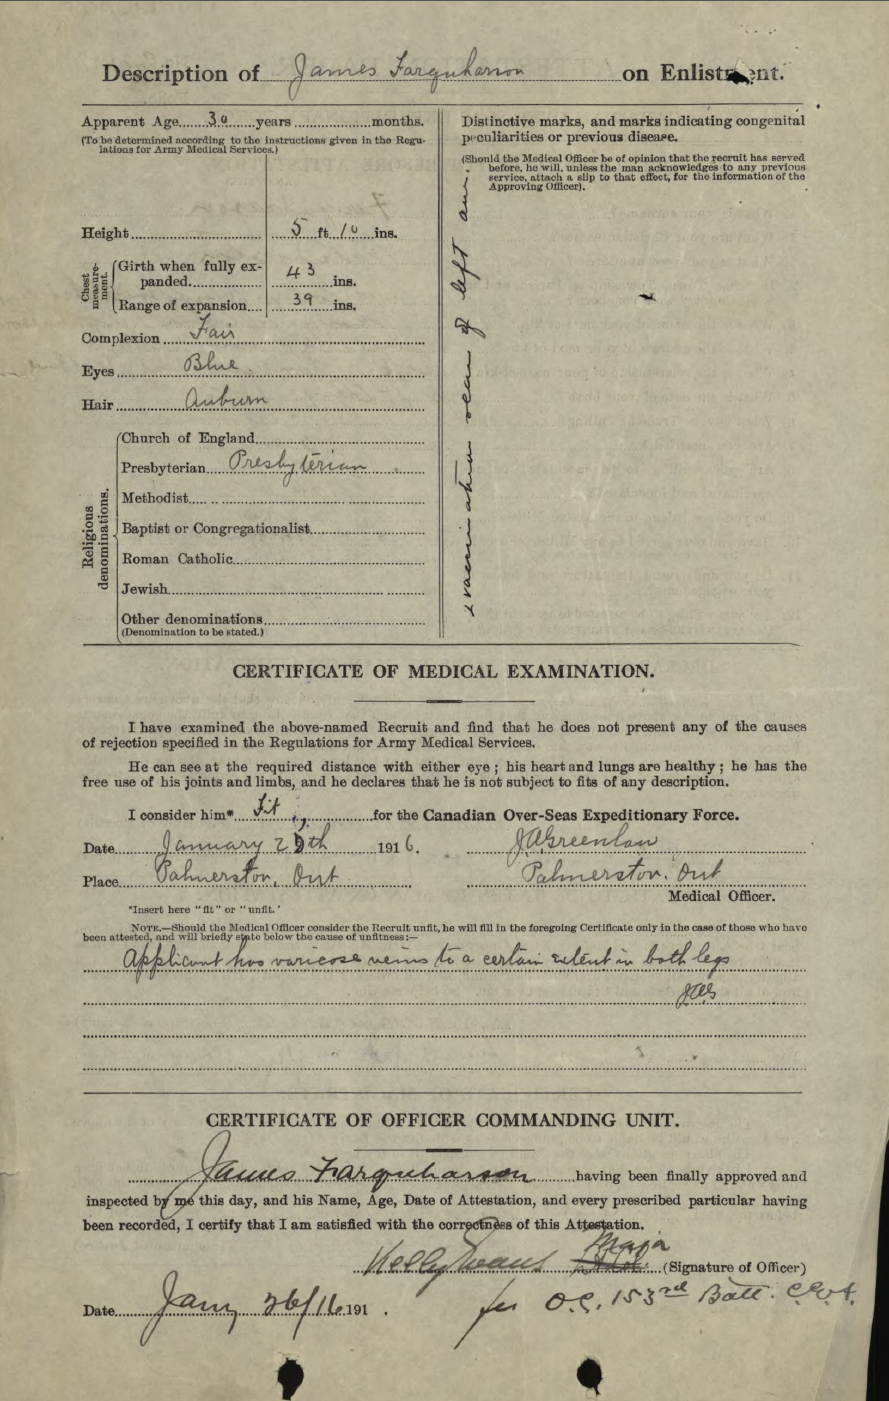 Description of James Farquharson on Enlistment.
Apparent Age 30 years months.
(To be determined according to the instructions given in the Regu-
lations for Army Medical Services.)
Height 5 ft. 10 ins.
Chest measure-ment.
Girth when fully ex-
panded 43 ins.
Range of expansion 39 ins.
Complexion Fair
Eyes Blue
Hair Auburn
Religious denominations.
Church of England
Presbyterian Presbyterian
Methodist
Baptist or Congregationalist
Roman Catholic
Jewish
Other denominations
(Denomination to be stated.)
Distinctive marks, and marks indicating congenital
peculiarities or previous disease.
(Should the Medical Officer be of opinion that the recruit has served
before, he will, unless the man acknowledges to any previous
service, attach a slip to that effect, for the information of the
Approving Officer).
vaccination scar of left arm
CERTIFICATE OF MEDICAL EXAMINATION.
I have examined the above-named Recruit and find that he does not present any of the causes
of rejection specified in the Regulations for Army Medical Services.
He can see at the required distance with either eye; his heart and lungs are healthy; he has the
free use of his joints and limbs, and he declares that he is not subject to fits of any description.
I consider him* Fit for the Canadian Over-Seas Expeditionary Force.
Date January 1916. JAGreenlaw
Place Palmerston, Ont Palmerston. Ont
Medical Officer.
*Insert here "fit" or "unfit.'
NOTE.—Should the Medical Officer consider the Recruit unfit, he will fill in the foregoing Certificate only in the case of those who have
been attested, and will briefly state below the cause of unfitness:—
Applicant has varicose veins to a certain extent in both legs
JAG
CERTIFICATE OF OFFICER COMMANDING UNIT.
James Farquharson having been finally approved and
inspected by me this day, and his Name, Age, Date of Attestation, and every prescribed particular having
been recorded, I certify that I am satisfied with the correctness of this Attestation.
Major
Kelly Evans (Signature of Officer)
Date Jany 26/16 191 . for O.C. 153rd Batt. C.E.F.